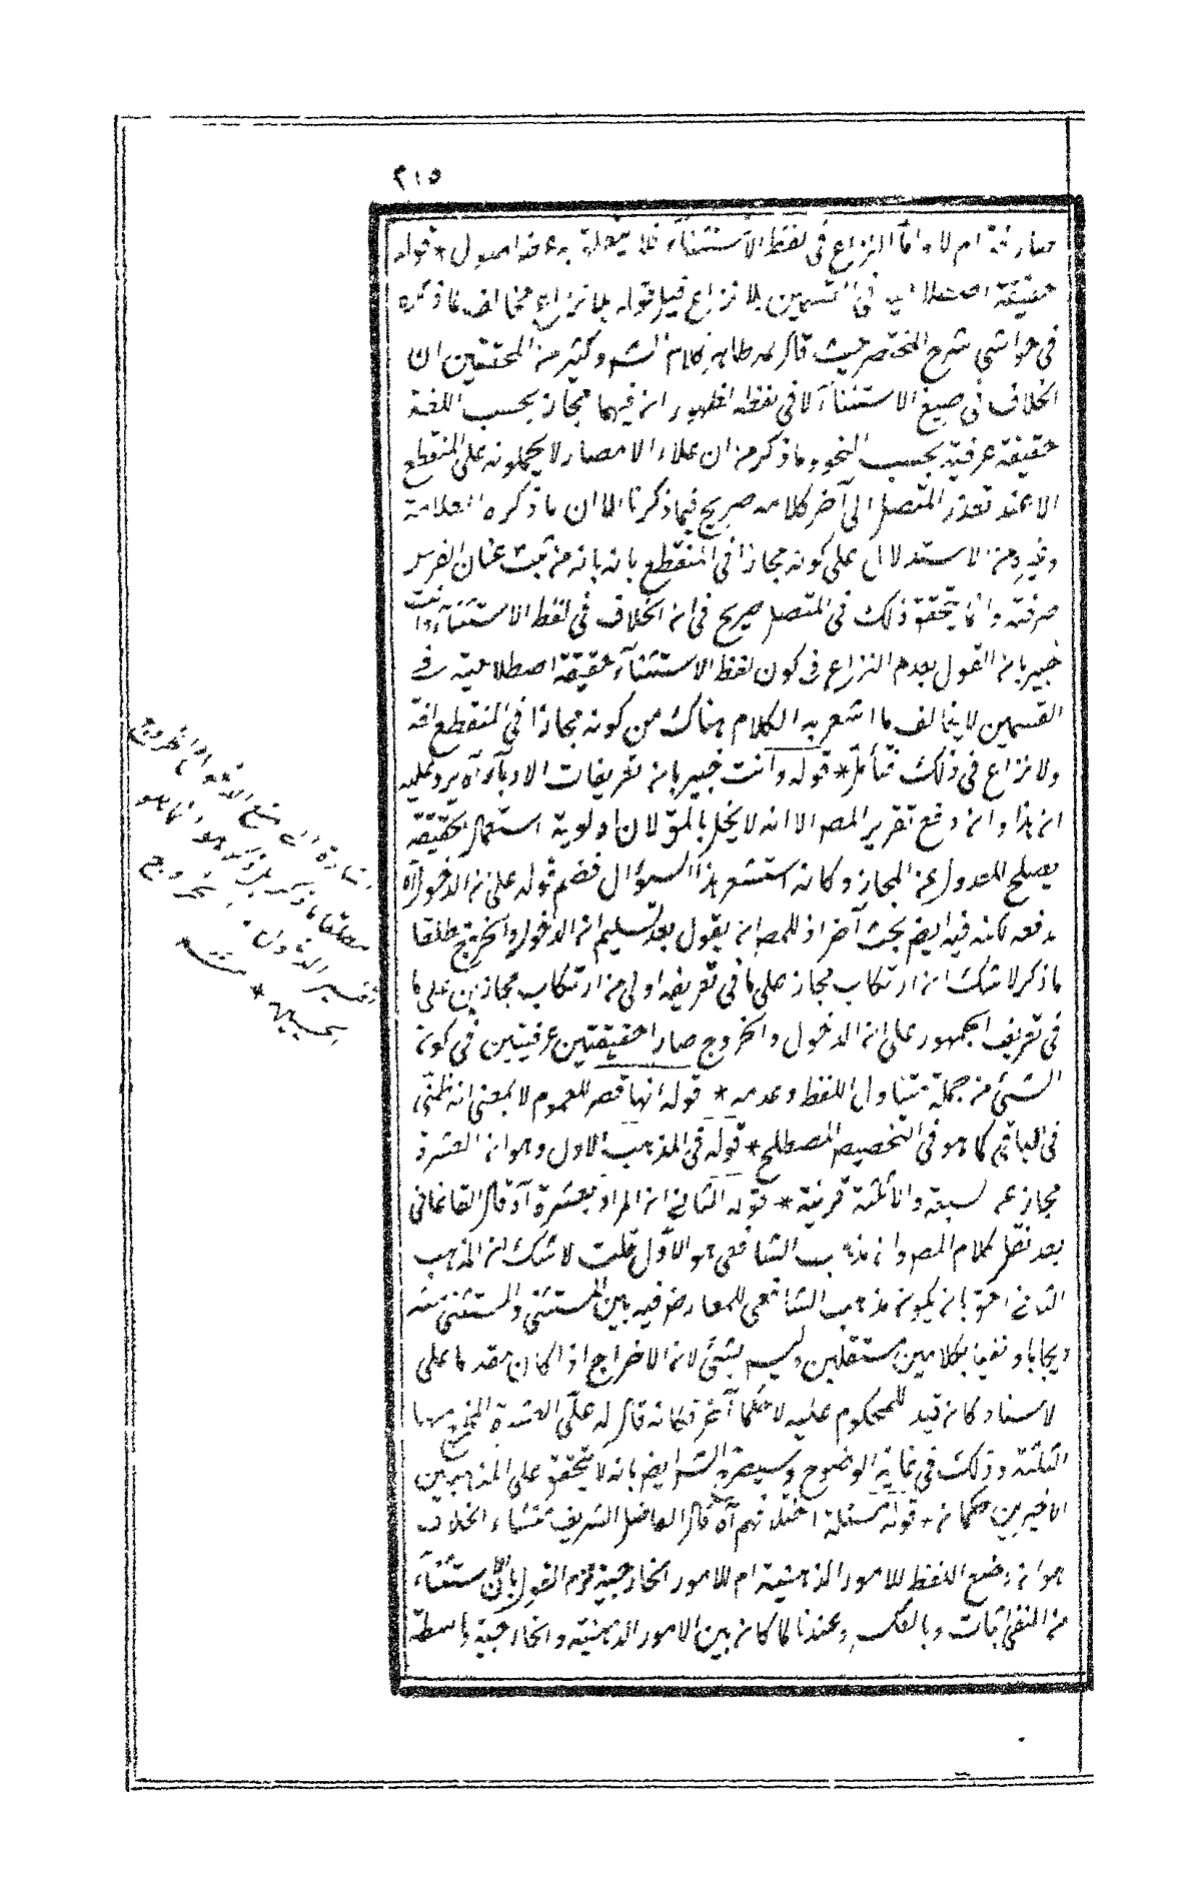 ٢١٥
معارضة ام لا واما النزاع فى لفظ الاستثناء فلا يتعلق به غرض اصولى * قوله
حقيقة اصطلاحية فى القسمين بلا نزاع قيل قوله بلا نزاع مخالف لما ذكره
فى حواشى شرح المختصر حيث قال له ظاهر كلام الشم وكثير من المحققين ان
الخلاف فى صيغ الاستثناء لا فى لفظه لظهور انه فيهما مجاز بحسب اللغة
حقيقة عرفية بحسب النحو وما ذكر من ان علماء الامصار لا يحملونه على المنقطع
الا عند تعذر المتصل الى آخر كلامه صريح فيما ذكرنا الا ان ما ذكره العلامة
وغيره من الاستدلال على كونه مجازا فى المنقطع بانه بانه من ثبت عنان الفرس
صرفته وانما يتحقق ذلك فى المتصل صريح فى ان الخلاف فى لفظ الاستثناء وانت
خبير بان القول بعدم النزاع فى كون لفظ الاستثناء حقيقة اصطلاحية فى
القسمين لا يخالف ما اشعر به الكلام هناك من كونه مجازا فى المنقطع لغة
ولا نزاع فى ذلك فتأمل * قوله وانت خبير بان تعريفات الادباء آه يرد عليه
ان هذا وان دفع تقرير المص الا انه لا يخل بالمق لان اولوية استعمال الحقيقة
يصلح للعدول عن المجاز وكانه استشعر هذا السؤال فضم قوله على ان الدخول آه
دفعه لكنه فيه ايضا بحث آخر اذ للمص ان يقول بعد تسليم ان الدخول والخروج مطلقا
ما ذكر لا شك ان ارتكاب مجاز على ما فى تعريفه اولى من ارتكاب مجازين على ما
فى تعريف الجمهور على ان الدخول والخروج صارا حقيقتين عرفيتين فى كونه
الشئ من جملة متناول اللفظ وعدمه * قوله انها قصر للعموم لا بمعنى انه ظنى
فى الباقى كما هو فى التخصيص المصطلح * قوله فى المذهب الاول وهو ان العشرة
مجاز عن سبعة والا ثلثة قرينة * قوله الثانى ان المراد بعشرة آه قال القاغانى
بعد نقل كلام المص وان مذهب الشافعى هو الاول قلت لا شك ان المذهب
الثانى احق بان يكون مذهب الشافعى للمعارض فيه بين المستثنى والمستثنى منه
ايجابا ونفيا بكلامين مستقلين وليس بشئ لان الاخراج اذا كان مقدما على
لاسناد كان قيد للمحكوم عليه لا حكما آخر فكانه قال له على العشرة المخرج منها
الثلثة وذلك فى غاية الوضوح وسيصرح الش ايضا بانه لا يتحقق على المذهبين
الاخيرين حكمان * قوله مسئلة اختلافهم آه قال الفاضل الشريف منشاء الخلاف
هو ان وضع اللفظ للامور الذهنية ام للامور الخارجية فيلزم القول بان الاستثناء
من النفى اثبات وبالعكس وعندنا لما كان بين الامور الذهنية والخارجية واسطة
اشارة الى منع الدخول والخروج
مطلقا ما ذكر بل ذكر هو انما هو
تفسير الدخول الخروج
بحسبه * منه